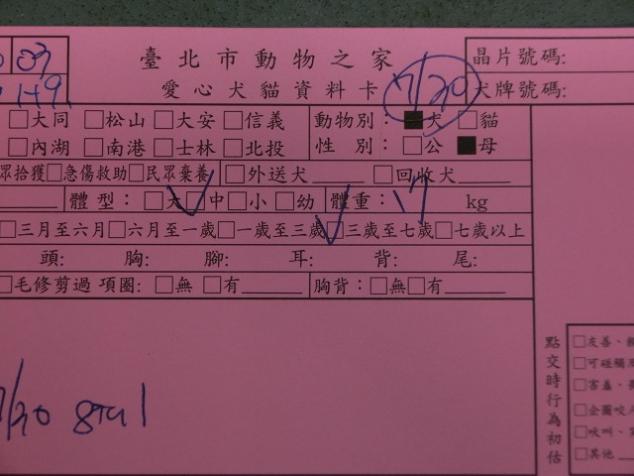 臺北市動物之家
愛心犬貓資料卡
03
7/20
晶片號碼:
犬牌號碼:
□大同 □松山 □大安 □信義 動物別: ■犬 □貓
□內湖 □南港 □士林 □北投 性 別: □公 ■母
眾拾獲□急傷救助□民眾棄養 □外送犬 □回收犬
體 型: □大□中□小□幼 體重: 17 kg
□三月至六月□六月至一歲□一歲至三歲□三歲至七歲□七歲以上
頭: 胸: 腳: 耳: 背: 尾:
□毛修剪過 項圈: □無 □有 胸背: □無□有
點交時行為初估
□友善、
□可碰觸
□害羞、
□企圖咬
□吠叫、
□其他